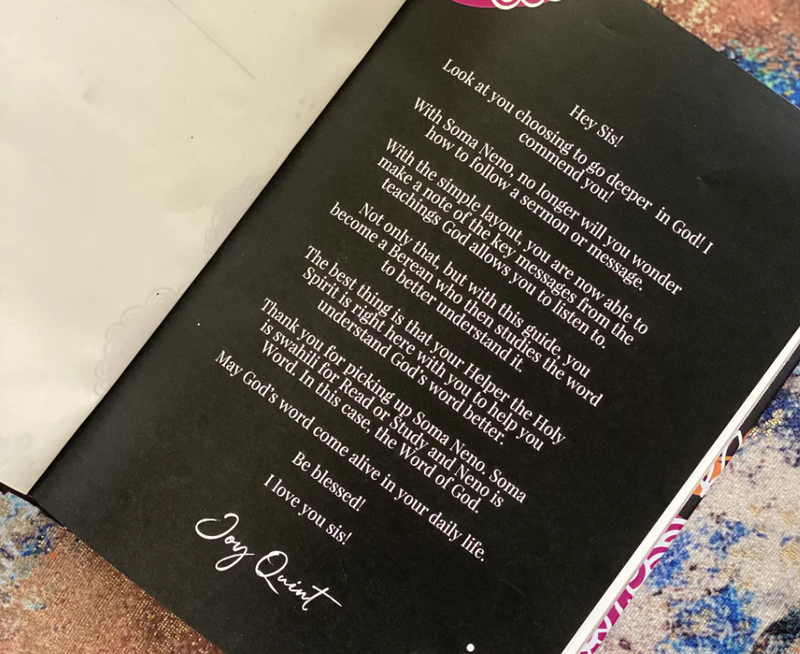 Hey Sis!
Look at you choosing to go deeper in God! I
commend you!
With Soma Neno, no longer will you wonder
how to follow a sermon or message.
With the simple layout, you are now able to
make a note of the key messages from the
teachings God allows you to listen to.
Not only that, but with this guide, you
become a Berean who then studies the word
to better understand it.
The best thing is that your Helper the Holy
Spirit is right here with you to help you
understand God's word better.
Thank you for picking up Soma Neno. Soma
is swahili for Read or Study and Neno is
Word. In this case, the Word of God.
May God's word come alive in your daily life.
Be blessed!
I love you sis!
Joy Quint